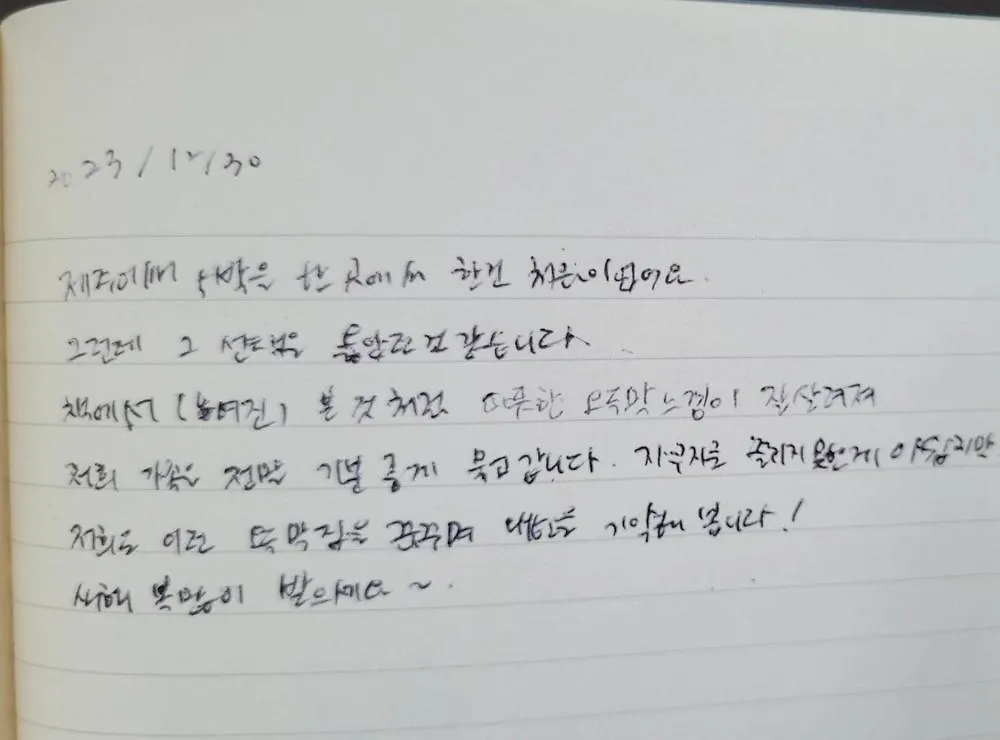 2023/12/30
제주에서 5박을 한 곳에서 한건 처음이었어요.
그런데 그 선택은 옳았던 것 같습니다.
책에서 본 것처럼 아묵한 오두막 느낌이 잘 살려져
저희 가족은 정말 기분 좋게 묵고 갑니다. 즐기지 못한게 아쉽지만
저희도 이런 오두막집을 꿈꾸며 기약해 봅니다!
새해 복 많이 받으세요~.